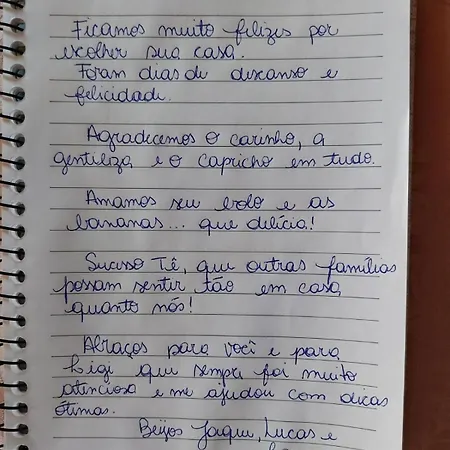 Ficamos muito felizes por
escolher sua casa.
Foram dias de descanso e
felicidade.
Agradecemos o carinho, a
gentileza e o capricho em tudo.
Amamos seu bolo e as
bananas... que delícia!
Sucesso Tê, que outras famílias
possam sentir tão em casa
quanto nós!
Abraços para você e para
Ligi que sempre foi muito
atenciosa e me ajudou com dicas
ótimas.
Beijos Jaqui, Lucas e